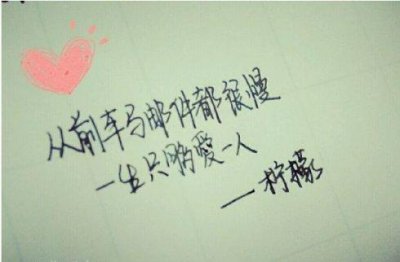 从前车马邮件都很慢
一生只够爱一人
——柠檬